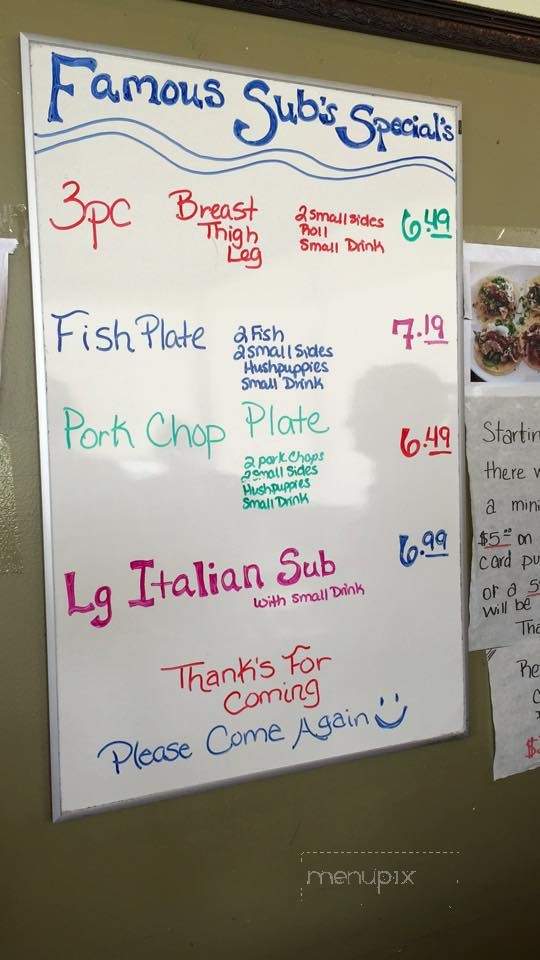 Famous Sub's Special's
3pc Breast 2 small sides 6.49
Thigh Roll
Leg Small Drink
Fish Plate 2 Fish 7.19
2 Small Sides
Hushpuppies
Small Drink
Pork Chop Plate 6.49
2 pork chops
2 small Sides
Hushpuppies
Small Drink
Lg Italian Sub 6.99
with Small Drink
Thank's For
Coming
Please Come Again
Startin
there w
a mini
$5.00 on
card pu
or a
will be
Tha
Re
menupix